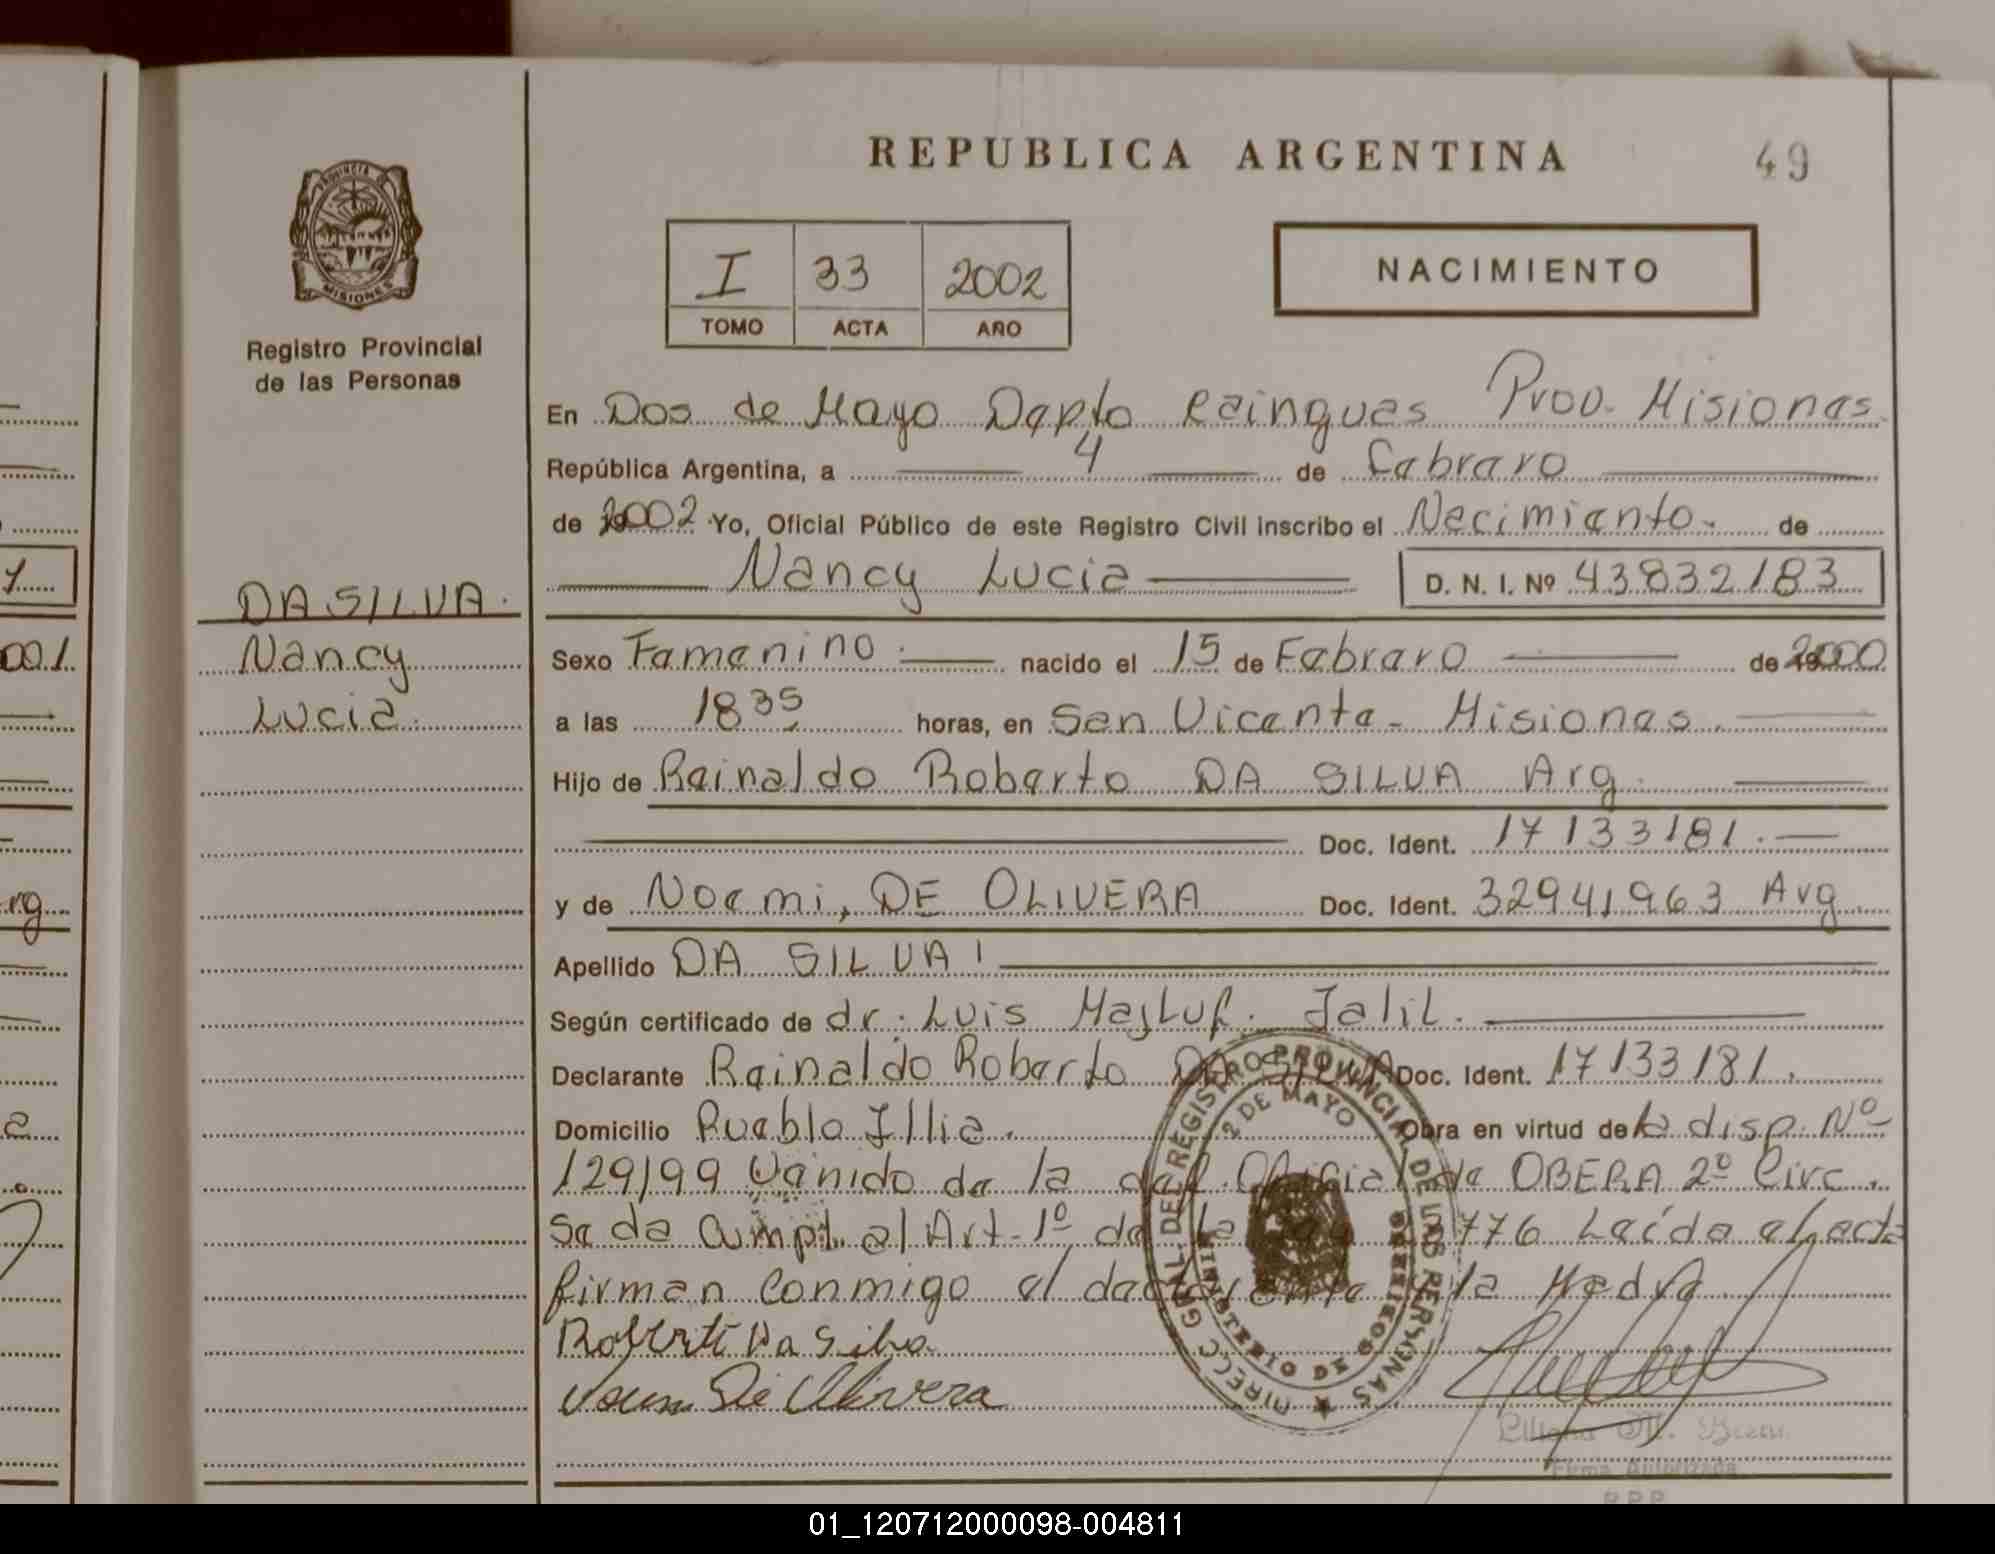 REPUBLICA ARGENTINA
49
PROVINCIA DE
MISIONES
Registro Provincial
de las Personas
I 33 2002
TOMO ACTA AÑO
NACIMIENTO
En Dos de Mayo Depto Cainguas Prov. Misiones
República Argentina, a 4 de Febrero
de 2002 Yo, Oficial Público de este Registro Civil inscribo el Necimiento. de
Nancy Lucia D. N. I. Nº 43832183
DA SILVA.
Nancy
Lucia
Sexo Femenino nacido el 15 de Febrero de 2000
a las 1835 horas, en San Vicente - Misiones.
Hijo de Reinaldo Roberto DA SILVA Arg.
Doc. Ident. 17133181.
y de Noemi, DE OLIVERA Doc. Ident. 32941963 Arg
Apellido DA SILVA
Según certificado de dr. Luis Majluf. Jalil.
Declarante Reinaldo Roberto DA SILVA Doc. Ident. 17133181.
Domicilio Pueblo Illia. Obra en virtud de la disp. Nº
129/99 Venido de la del. Oficial de OBERA 2º Circ.
Se da Cumpl. al Art. 1º de la 776 Leída el acta
firman Conmigo el declarante la Madre
Roberto Da Silva
De Olivera
DIRECC GRAL. DEL REGISTRO PROVINCIAL DE LAS PERSONAS
2 DE MAYO
MINISTERIO DE GOBIERNO
Liliana M.
Firma Autorizada
R.P.P.
001
rg
01_120712000098-004811